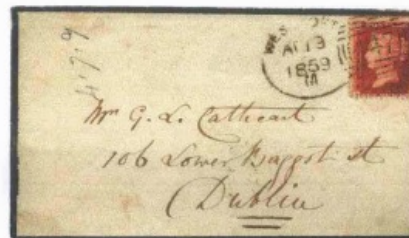 4719
AU 19
1859
Mr G. L. Cathcart
106 Lower Baggot st
Dublin